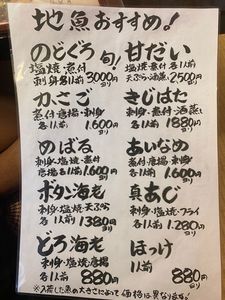 地魚おすすめ!
のどぐろ 旬!
塩焼・煮付
刺身各1人前 3000円ヨリ
甘だい
塩焼・煮付 各1人前
天ぷら・酒蒸し 2,500円ヨリ
カサゴ
煮付・唐揚・刺身
各1人前 1,600円ヨリ
きじはた
刺身・煮付・酒蒸し
各1人前 1880円ヨリ
めばる
刺身・塩焼・煮付
唐揚 各1人前 1,600円ヨリ
あいなめ
煮付・唐揚・刺身
各1人前 1,600円ヨリ
ボタン海老
刺身・塩焼・天ぷら
各1人前 1380円ヨリ
真あじ
刺身・塩焼・フライ
各1人前 1,280円ヨリ
どろ海老
刺身・塩焼・唐揚
各1人前 880円ヨリ
ほっけ
1人前 880円ヨリ
※入荷した魚の大きさによって価格は異なります!